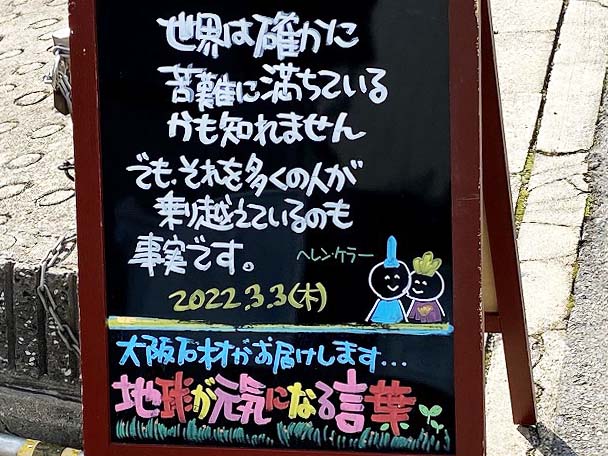 世界は確かに
苦難に満ちている
かも知れません
でも、それを多くの人が
乗り越えているのも
事実です。
ヘレン・ケラー
2022.3.3(木)
大阪石材がお届けします...
地球が元気になる言葉